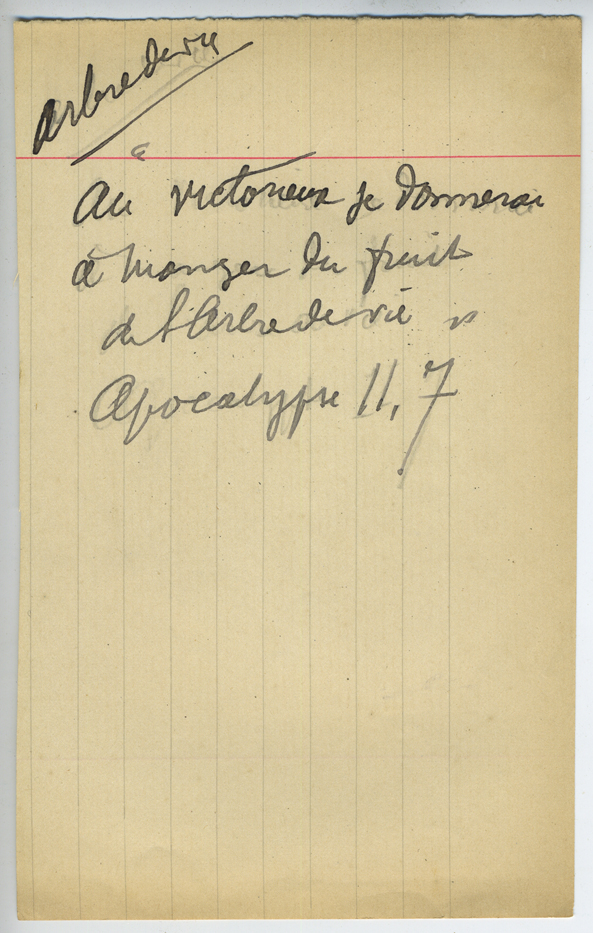 Arbre de vie
« Au victorieux je donnerai
à manger du fruit
de l'Arbre de vie »
Apocalypse II, 7